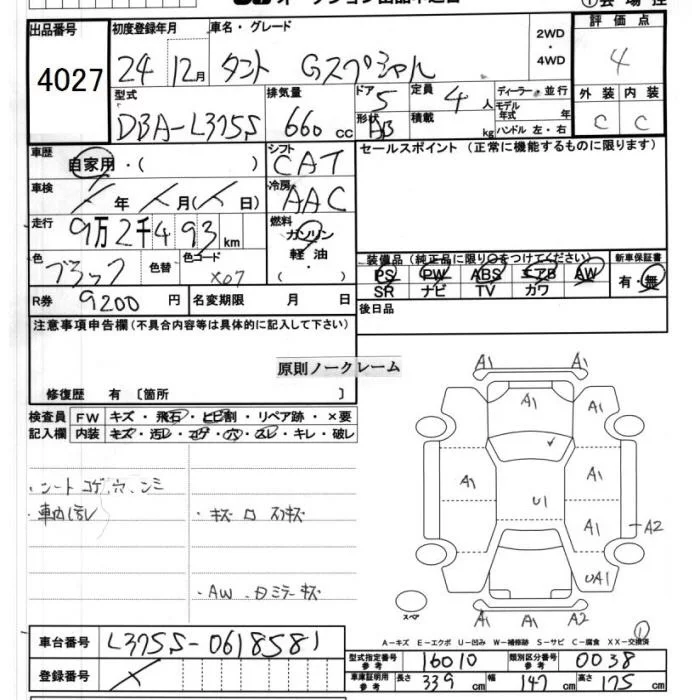 出品番号
4027
初度登録年月
24年 12月
車名・グレード
タント Gスペシャル
2WD
・
4WD
評価点
4
外装 内装
C C
型式
DBA-L375S
排気量
660 cc
ドア
5
形状
定員
4 人
積載
kg
ディーラー・並行
モデル年式 年
ハンドル 左・右
車歴
自家用・( )
シフト
CAT
セールスポイント (正常に機能するものに限ります)
車検
年 月 ( 日)
冷房
AAC
走行
9万2千493 km
燃料
ガソリン
軽油・
( )
色
ブラック
色替
色コード
X07
装備品 (純正品に限り○をつけてください)
PS PW ABS エアB AW
SR ナビ TV カワ
新車保証書
有・無
R券 9200 円
名変期限 月 日
後日品
注意事項申告欄 (不具合内容等は具体的に記入して下さい)
原則ノークレーム
修復歴 有 〔箇所 〕
検査員
記入欄
FW キズ・飛石・ヒビ割・リペア跡・×要
内装 キズ・汚レ・コゲ・穴・スレ・キレ・破レ
・シート コゲ、穴、シミ
・AW
A1 A1
A1 A1
A1 A1
U1
A1
A2
UA1
A1 A1 A2
スペア
A-キズ E-エクボ U-凹み W-補修跡 S-サビ C-腐食 XX-交換済
車台番号 L375S-0618581
登録番号
型式指定番号 参考 16010
類別区分番号 参考 0038
車庫証明用 参考 長さ 339 cm 幅 147 cm 高さ 175 cm